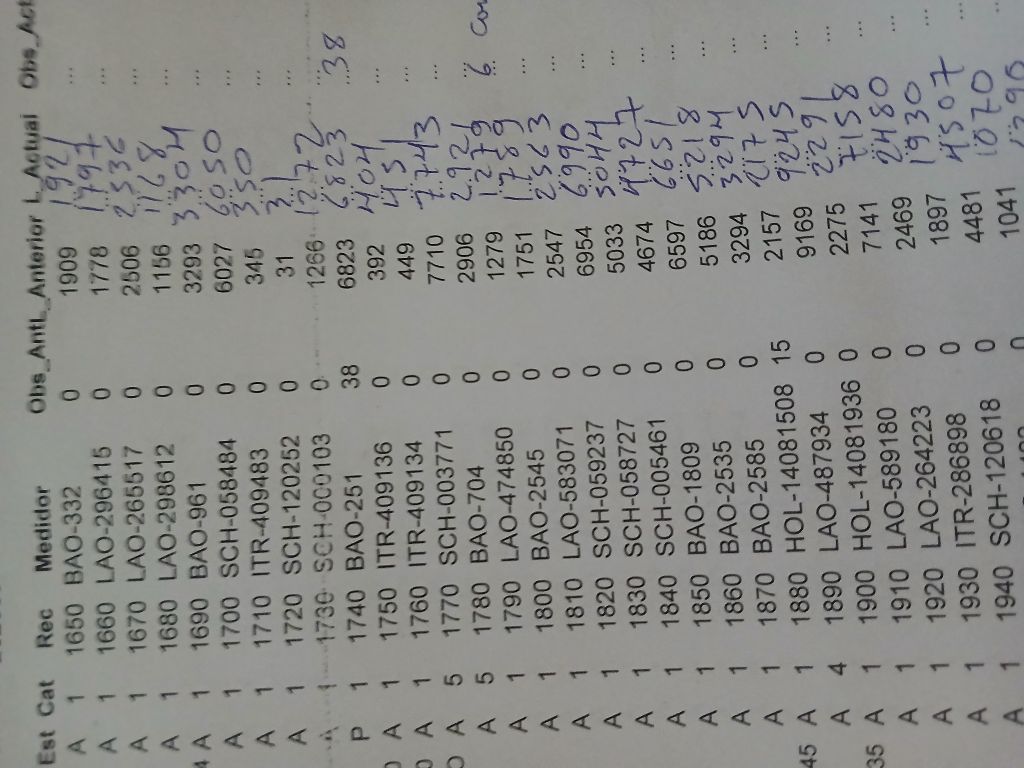 Est Cat Rec Medidor Obs_Ant L_Anterior L_Actual Obs_Act
A 1 1650 BAO-332 0 1909 1921 ...
A 1 1660 LAO-296415 0 1778 1797 ...
A 1 1670 LAO-265517 0 2506 2536 ...
A 1 1680 LAO-298612 0 1156 1168 ...
4 A 1 1690 BAO-961 0 3293 3304 ...
A 1 1700 SCH-058484 0 6027 6050 ...
A 1 1710 ITR-409483 0 345 350 ...
A 1 1720 SCH-120252 0 31 31 ...
A 1 1730 SCH-000103 0 1266 1272 ...
P 1 1740 BAO-251 38 6823 6823 38
0 A 1 1750 ITR-409136 0 392 404 ...
0 A 1 1760 ITR-409134 0 449 451 ...
O A 5 1770 SCH-003771 0 7710 7743 ...
A 5 1780 BAO-704 0 2906 2921 ...
A 1 1790 LAO-474850 0 1279 1279 6
A 1 1800 BAO-2545 0 1751 1789 ...
A 1 1810 LAO-583071 0 2547 2563 ...
A 1 1820 SCH-059237 0 6954 6990 ...
A 1 1830 SCH-058727 0 5033 5044 ...
A 1 1840 SCH-005461 0 4674 4727 ...
A 1 1850 BAO-1809 0 6597 6651 ...
A 1 1860 BAO-2535 0 5186 5218 ...
A 1 1870 BAO-2585 0 3294 3294 ...
45 A 1 1880 HOL-14081508 15 2157 2175 ...
A 4 1890 LAO-487934 0 9169 9245 ...
35 A 1 1900 HOL-14081936 0 2275 2291 ...
A 1 1910 LAO-589180 0 7141 7158 ...
A 1 1920 LAO-264223 0 2469 2480 ...
A 1 1930 ITR-286898 0 1897 1930 ...
A 1 1940 SCH-120618 0 4481 4507 ...
1041 1070 ...